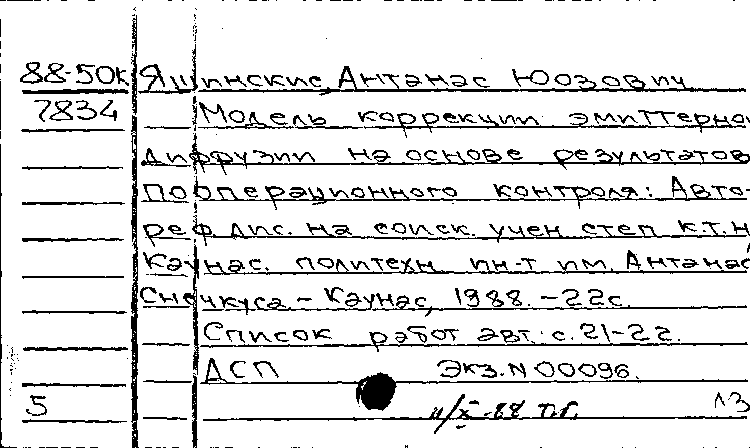 88-50к Яшинские, Антанас Юозович
7834 Модель коррекции эмиттерно
диффузии на основе результатов
пооперационного контроля: Авто-
реф. дис. на соиск. учен. степ. к.т.н
Каунас. политехн. ин-т им. Антанас
Снечкуса. – Каунас, 1988. – 22с.
Список работ авт.: с. 21-22.
ДСП Экз. N 00096.
5 11/X-88 п.г. 13